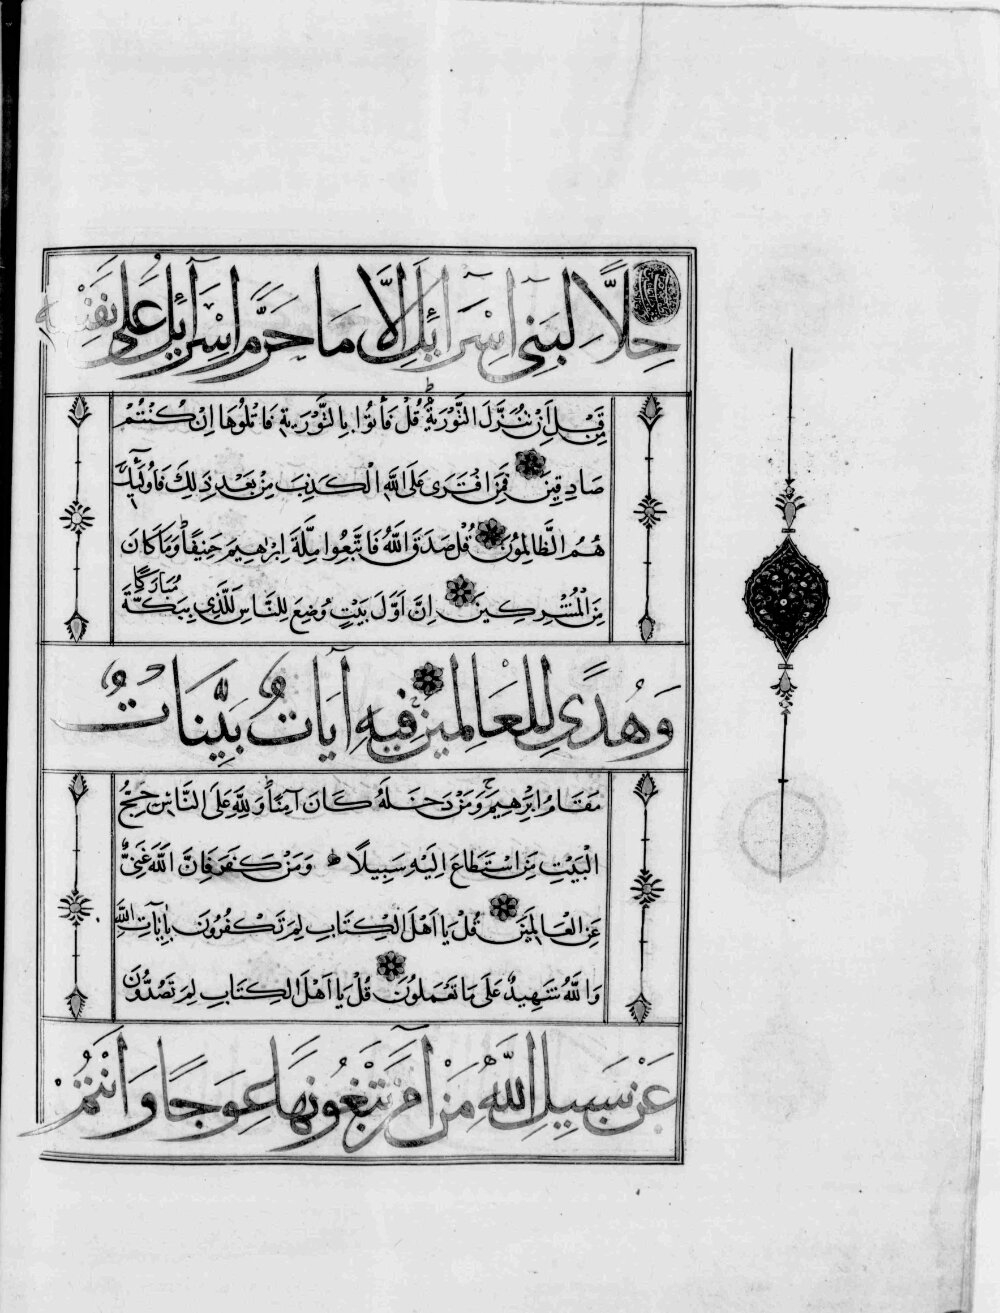 حِلًّا لِبَنِي اِسْرَائِلَ اِلَّا مَا حَرَّمَ اِسْرَآئِلُ عَلَى نَفْسِهِ
مِنْ قَبْلِ اَنْ تُنَزَّلَ التَّوْرٰيةُ قُلْ فَأْتُوا بِالتَّوْرٰيةِ فَاتْلُوهَا اِنْ كُنْتُمْ
صَادِقِينَ فَمَنِ افْتَرَى عَلَى اللَّهِ الْكَذِبَ مِنْ بَعْدِ ذٰلِكَ فَأُولٰئِكَ
هُمُ الظَّالِمُونَ قُلْ صَدَقَ اللَّهُ فَاتَّبِعُوا مِلَّةَ اِبْرٰهِيمَ حَنِيفًا وَمَا كَانَ
مِنَ الْمُشْرِكِينَ اِنَّ اَوَّلَ بَيْتٍ وُضِعَ لِلنَّاسِ لَلَّذِي بِبَكَّةَ مُبَارَكًا
وَهُدًى لِلْعَالَمِينَ فِيهِ اٰيَاتٌ بَيِّنَاتٌ
مَقَامُ اِبْرٰهِيمَ وَمَنْ دَخَلَهُ كَانَ اٰمِنًا وَلِلَّهِ عَلَى النَّاسِ حِجُّ
الْبَيْتِ مَنِ اسْتَطَاعَ اِلَيْهِ سَبِيلًا وَمَنْ كَفَرَ فَاِنَّ اللَّهَ غَنِيٌّ
عَنِ الْعَالَمِينَ قُلْ يَا اَهْلَ الْكِتَابِ لِمَ تَكْفُرُونَ بِاٰيَاتِ اللَّهِ
وَاللَّهُ شَهِيدٌ عَلَى مَا تَعْمَلُونَ قُلْ يَا اَهْلَ الْكِتَابِ لِمَ تَصُدُّونَ
عَنْ سَبِيلِ اللَّهِ مَنْ اٰمَنَ تَبْغُونَهَا عِوَجًا وَاَنْتُمْ